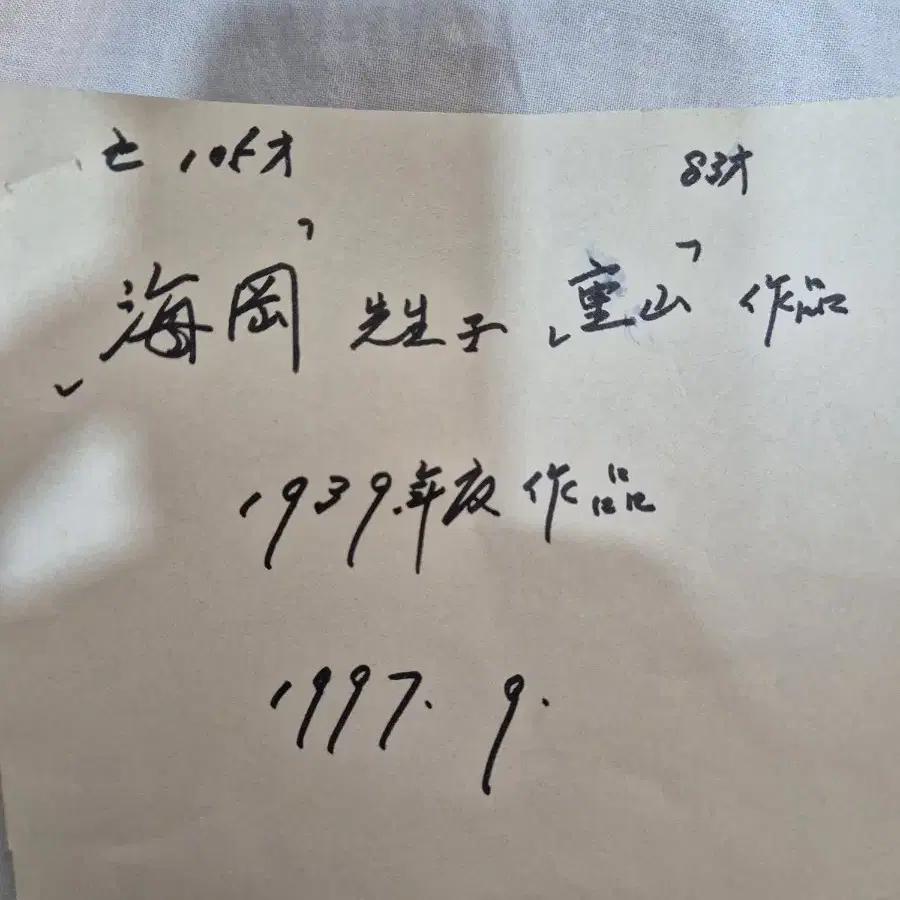 亡 105才 83才
「海岡」先生子「重山」作品
1939年度作品
1997. 9.